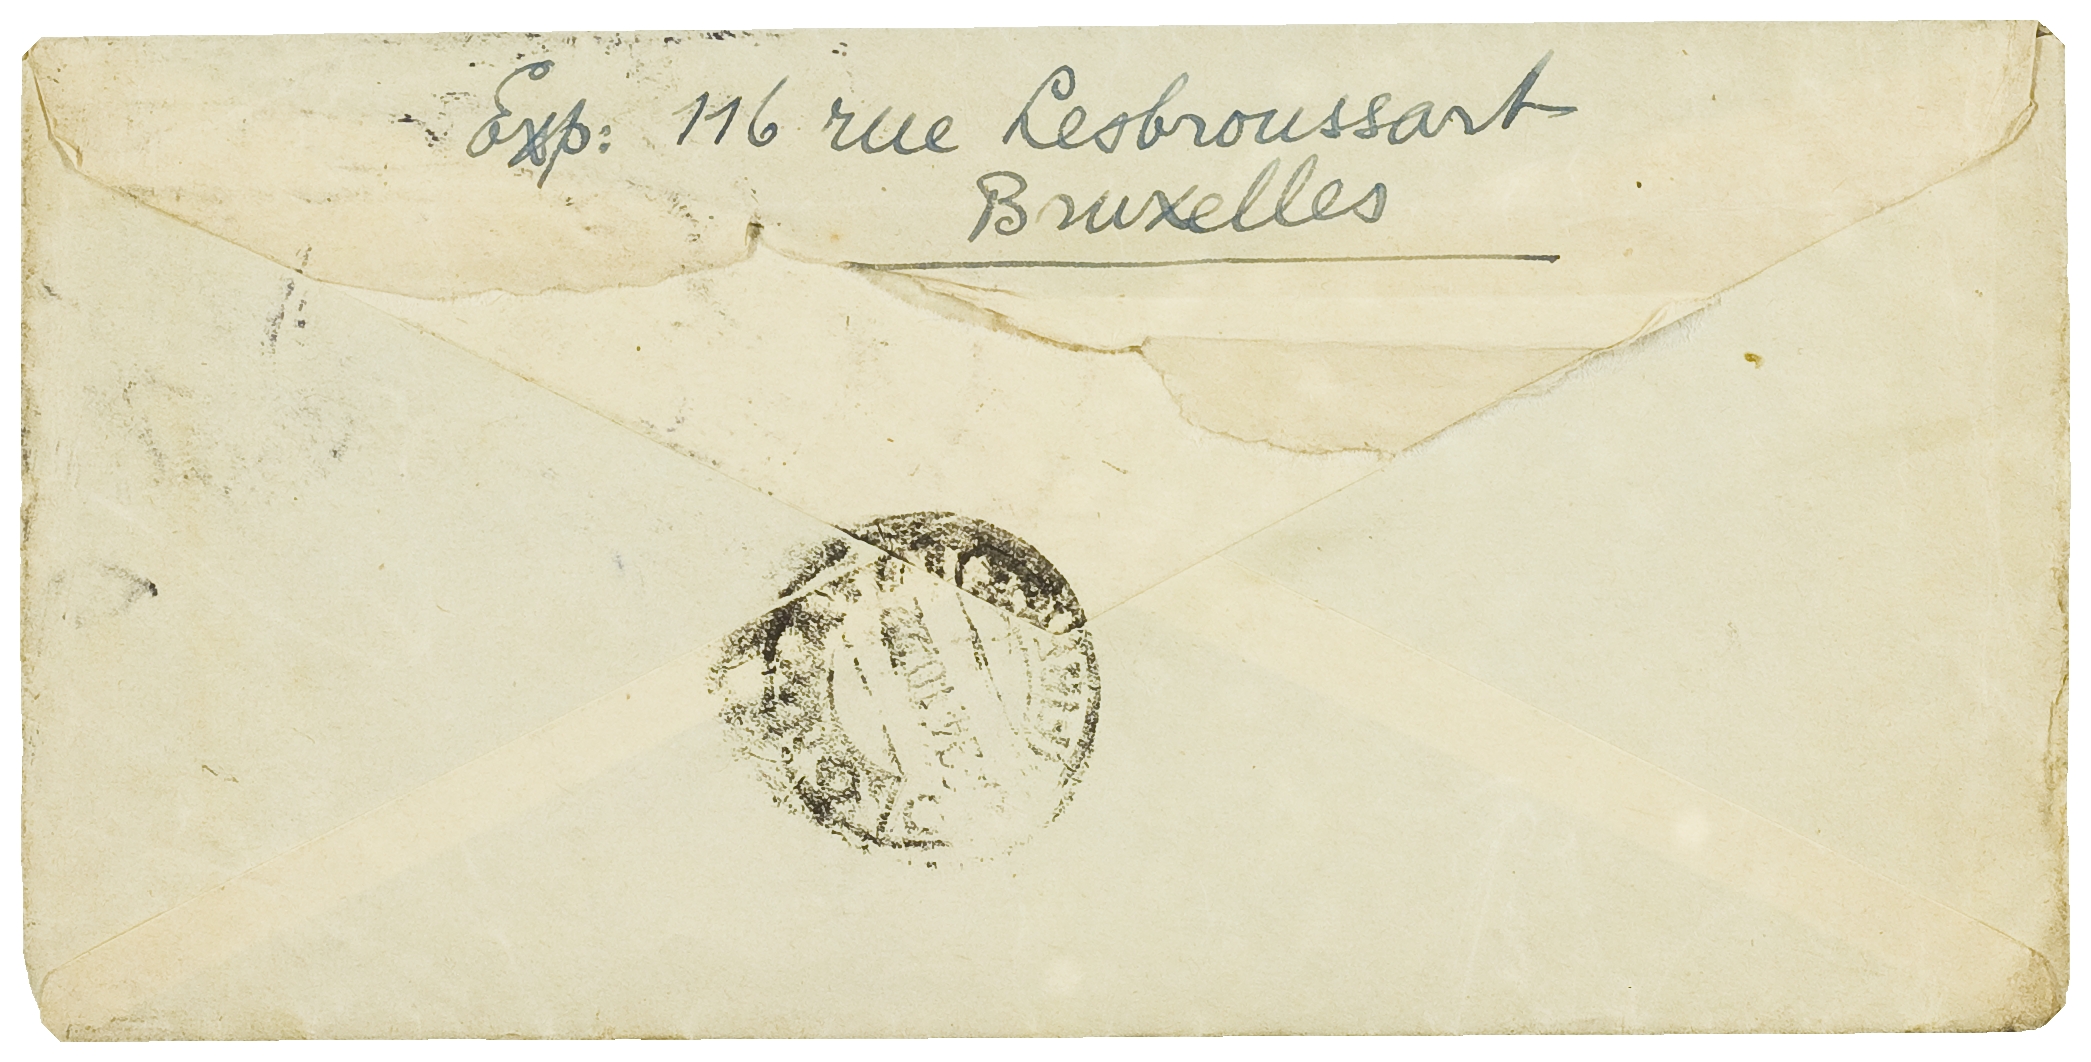 Exp: 116 rue Lesbroussart
Bruxelles